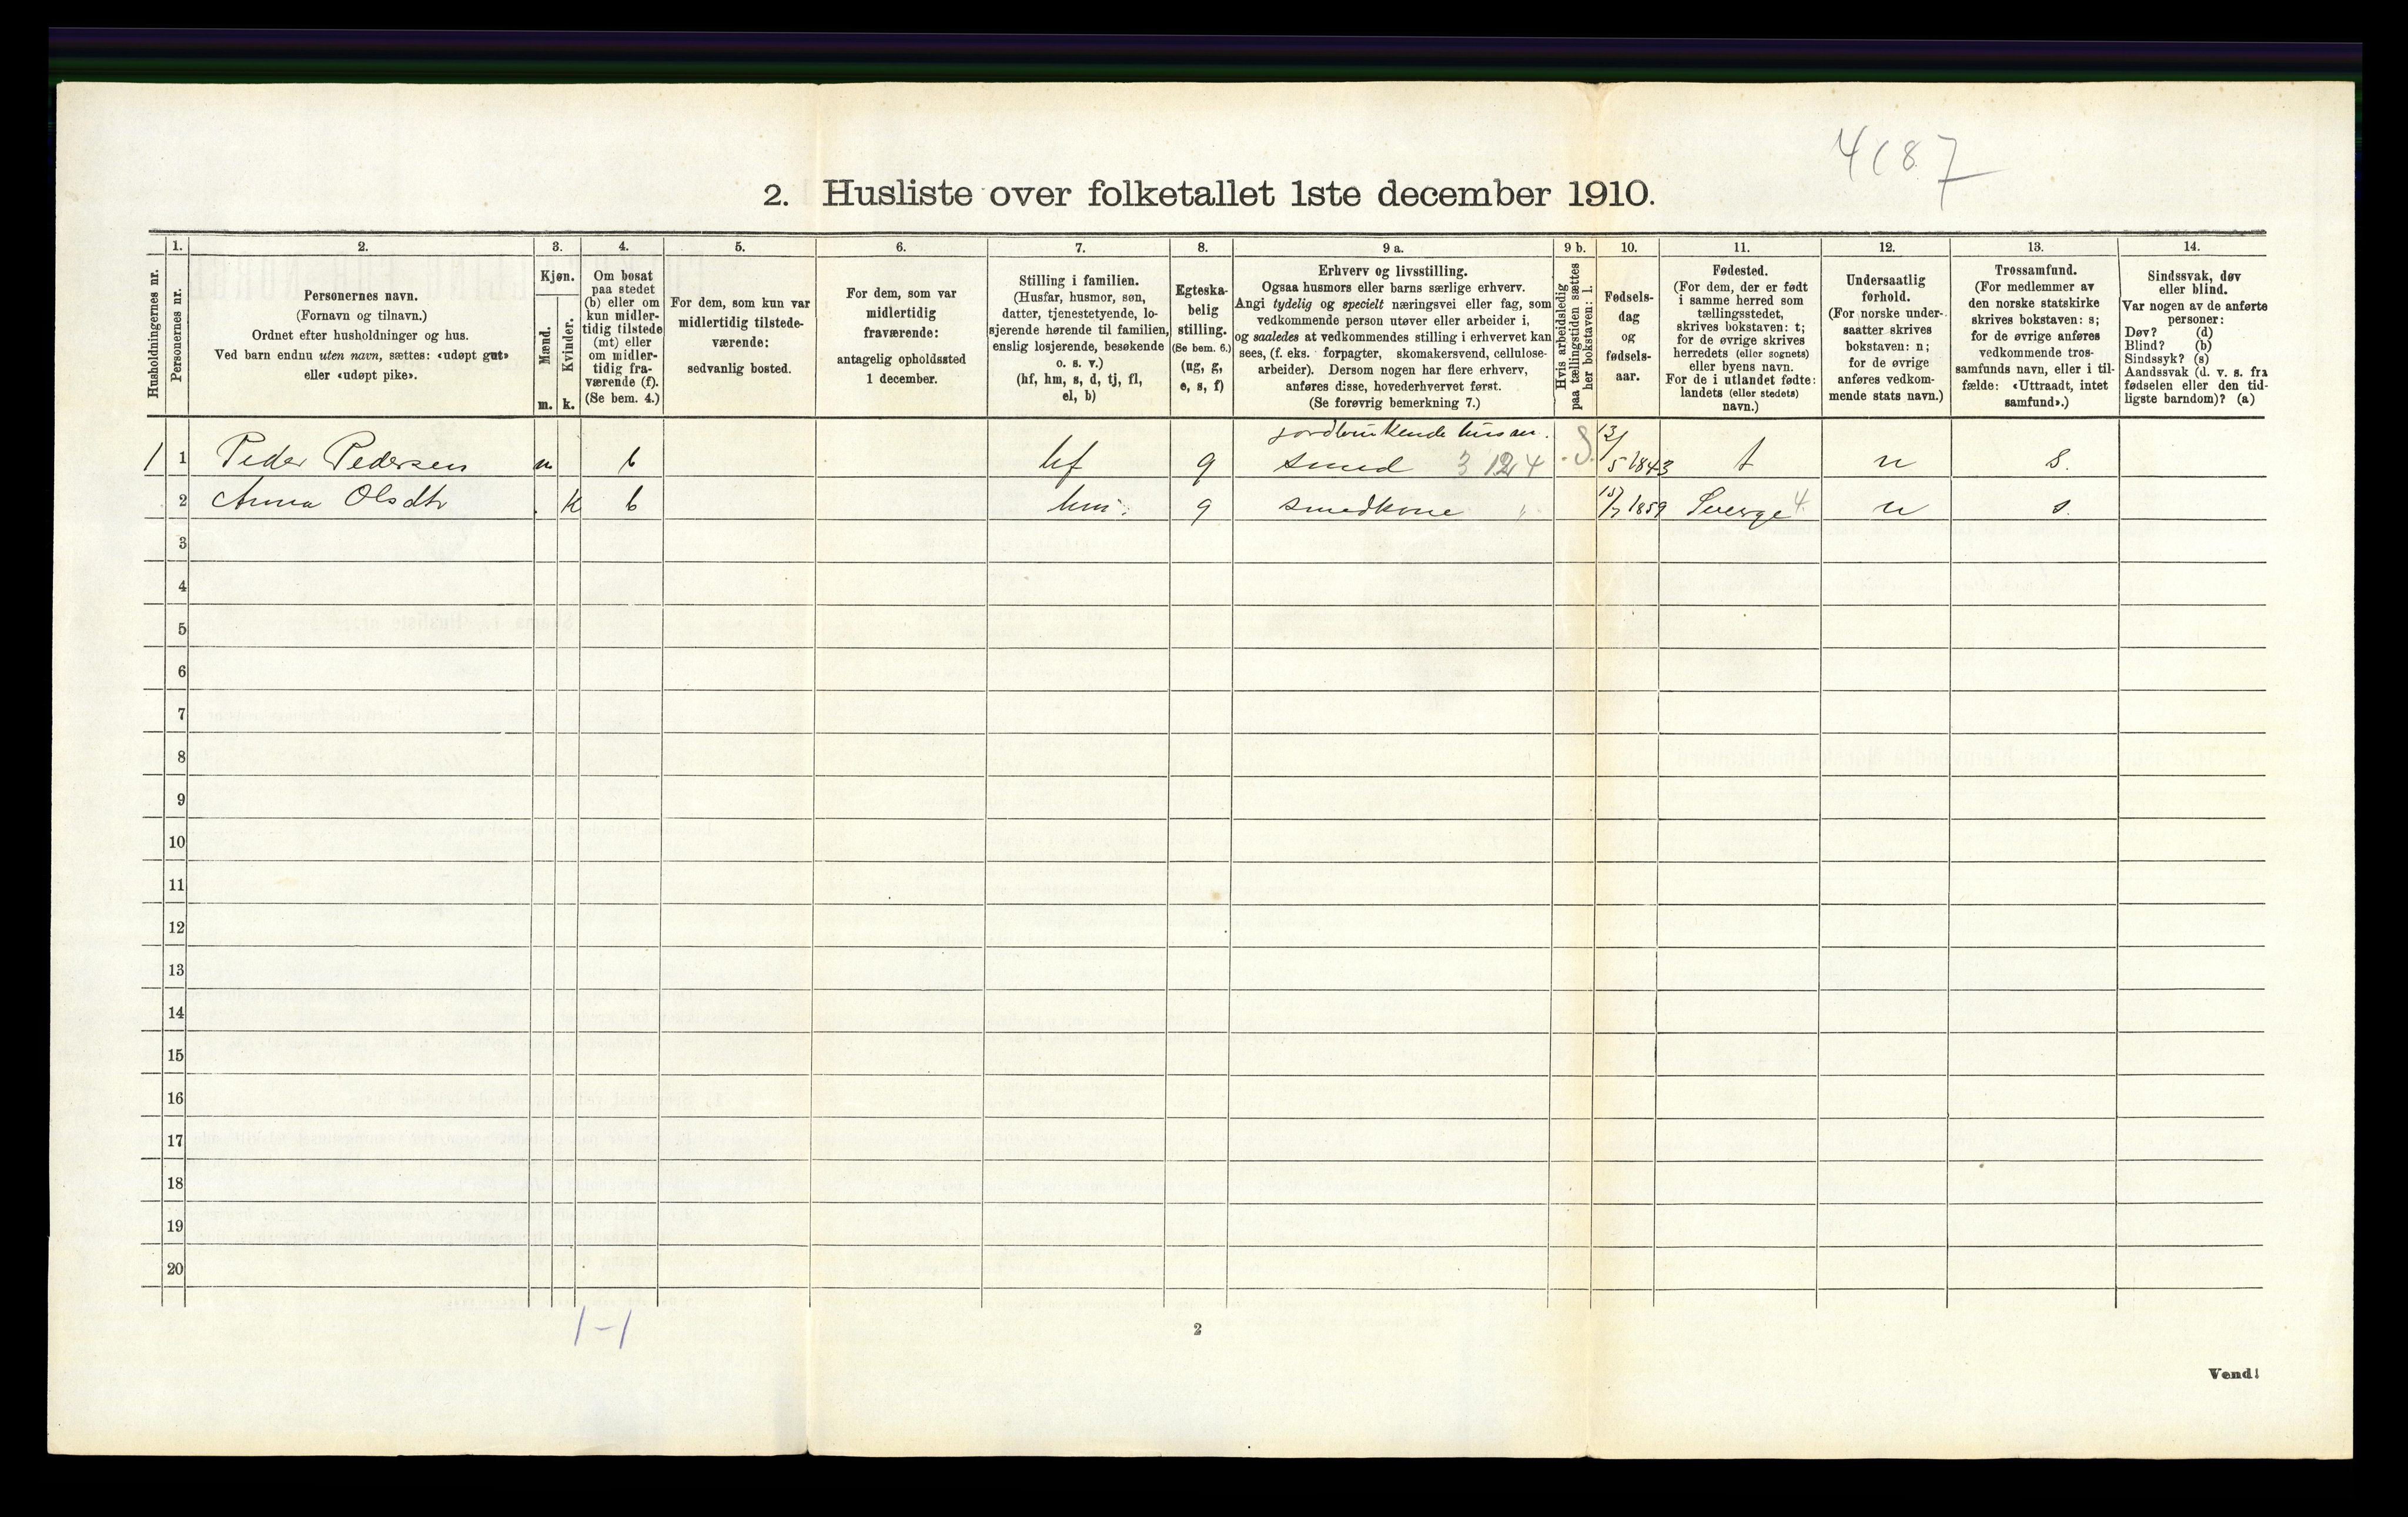 4187
2. Husliste over folketallet 1ste december 1910.
Husholdningernes nr.
1.
Personernes nr.
2.
Personernes navn.
(Fornavn og tilnavn.)
Ordnet efter husholdninger og hus.
Ved barn endnu uten navn, sættes: «udøpt gut»
eller «udøpt pike».
3.
Kjøn.
Mænd.
m.
Kvinder.
k.
4.
Om bosat
paa stedet
(b) eller om
kun midler-
tidig tilstede
(mt) eller
om midler-
tidig fra-
værende (f).
(Se bem. 4.)
5.
For dem, som kun var
midlertidig tilstede-
værende:
sedvanlig bosted.
6.
For dem, som var
midlertidig
fraværende:
antagelig opholdssted
1 december.
7.
Stilling i familien.
(Husfar, husmor, søn,
datter, tjenestetyende, lo-
sjerende hørende til familien,
enslig losjerende, besøkende
o. s. v.)
(hf, hm, s, d, tj, fl,
el, b)
8.
Egteska-
belig
stilling.
(Se bem. 6.)
(ug, g,
e, s, f)
9 a.
Erhverv og livsstilling.
Ogsaa husmors eller barns særlige erhverv.
Angi tydelig og specielt næringsvei eller fag, som
vedkommende person utøver eller arbeider i,
og saaledes at vedkommendes stilling i erhvervet kan
sees, (f. eks. forpagter, skomakersvend, cellulose-
arbeider). Dersom nogen har flere erhverv,
anføres disse, hovederhvervet først.
(Se forøvrig bemerkning 7.)
9 b.
Hvis arbeidsledig
paa tællingstiden sættes
her bokstaven: l.
10.
Fødsels-
dag
og
fødsels-
aar.
11.
Fødested.
(For dem, der er født
i samme herred som
tællingsstedet,
skrives bokstaven: t;
for de øvrige skrives
herredets (eller sognets)
eller byens navn.
For de i utlandet fødte:
landets (eller stedets)
navn.)
12.
Undersaatlig
forhold.
(For norske under-
saatter skrives
bokstaven: n;
for de øvrige
anføres vedkom-
mende stats navn.)
13.
Trossamfund.
(For medlemmer av
den norske statskirke
skrives bokstaven: s;
for de øvrige anføres
vedkommende tros-
samfunds navn, eller i til-
fælde: «Uttraadt, intet
samfund».)
14.
Sindssvak, døv
eller blind.
Var nogen av de anførte
personer:
Døv? (d)
Blind? (b)
Sindssyk? (s)
Aandssvak (d. v. s. fra
fødselen eller den tid-
ligste barndom)? (a)
jordbrukende husm.
1 1 Peder Pedersen m b hf g smed 3 124 S. 12/5 1843 t n s.
2 Anna Olsdtr k b hm. g smedkone " 1859 Sverge 4 n s.
3
4
5
6
7
8
9
10
11
12
13
14
15
16
17
18
19
20
1-1
2
Vend!